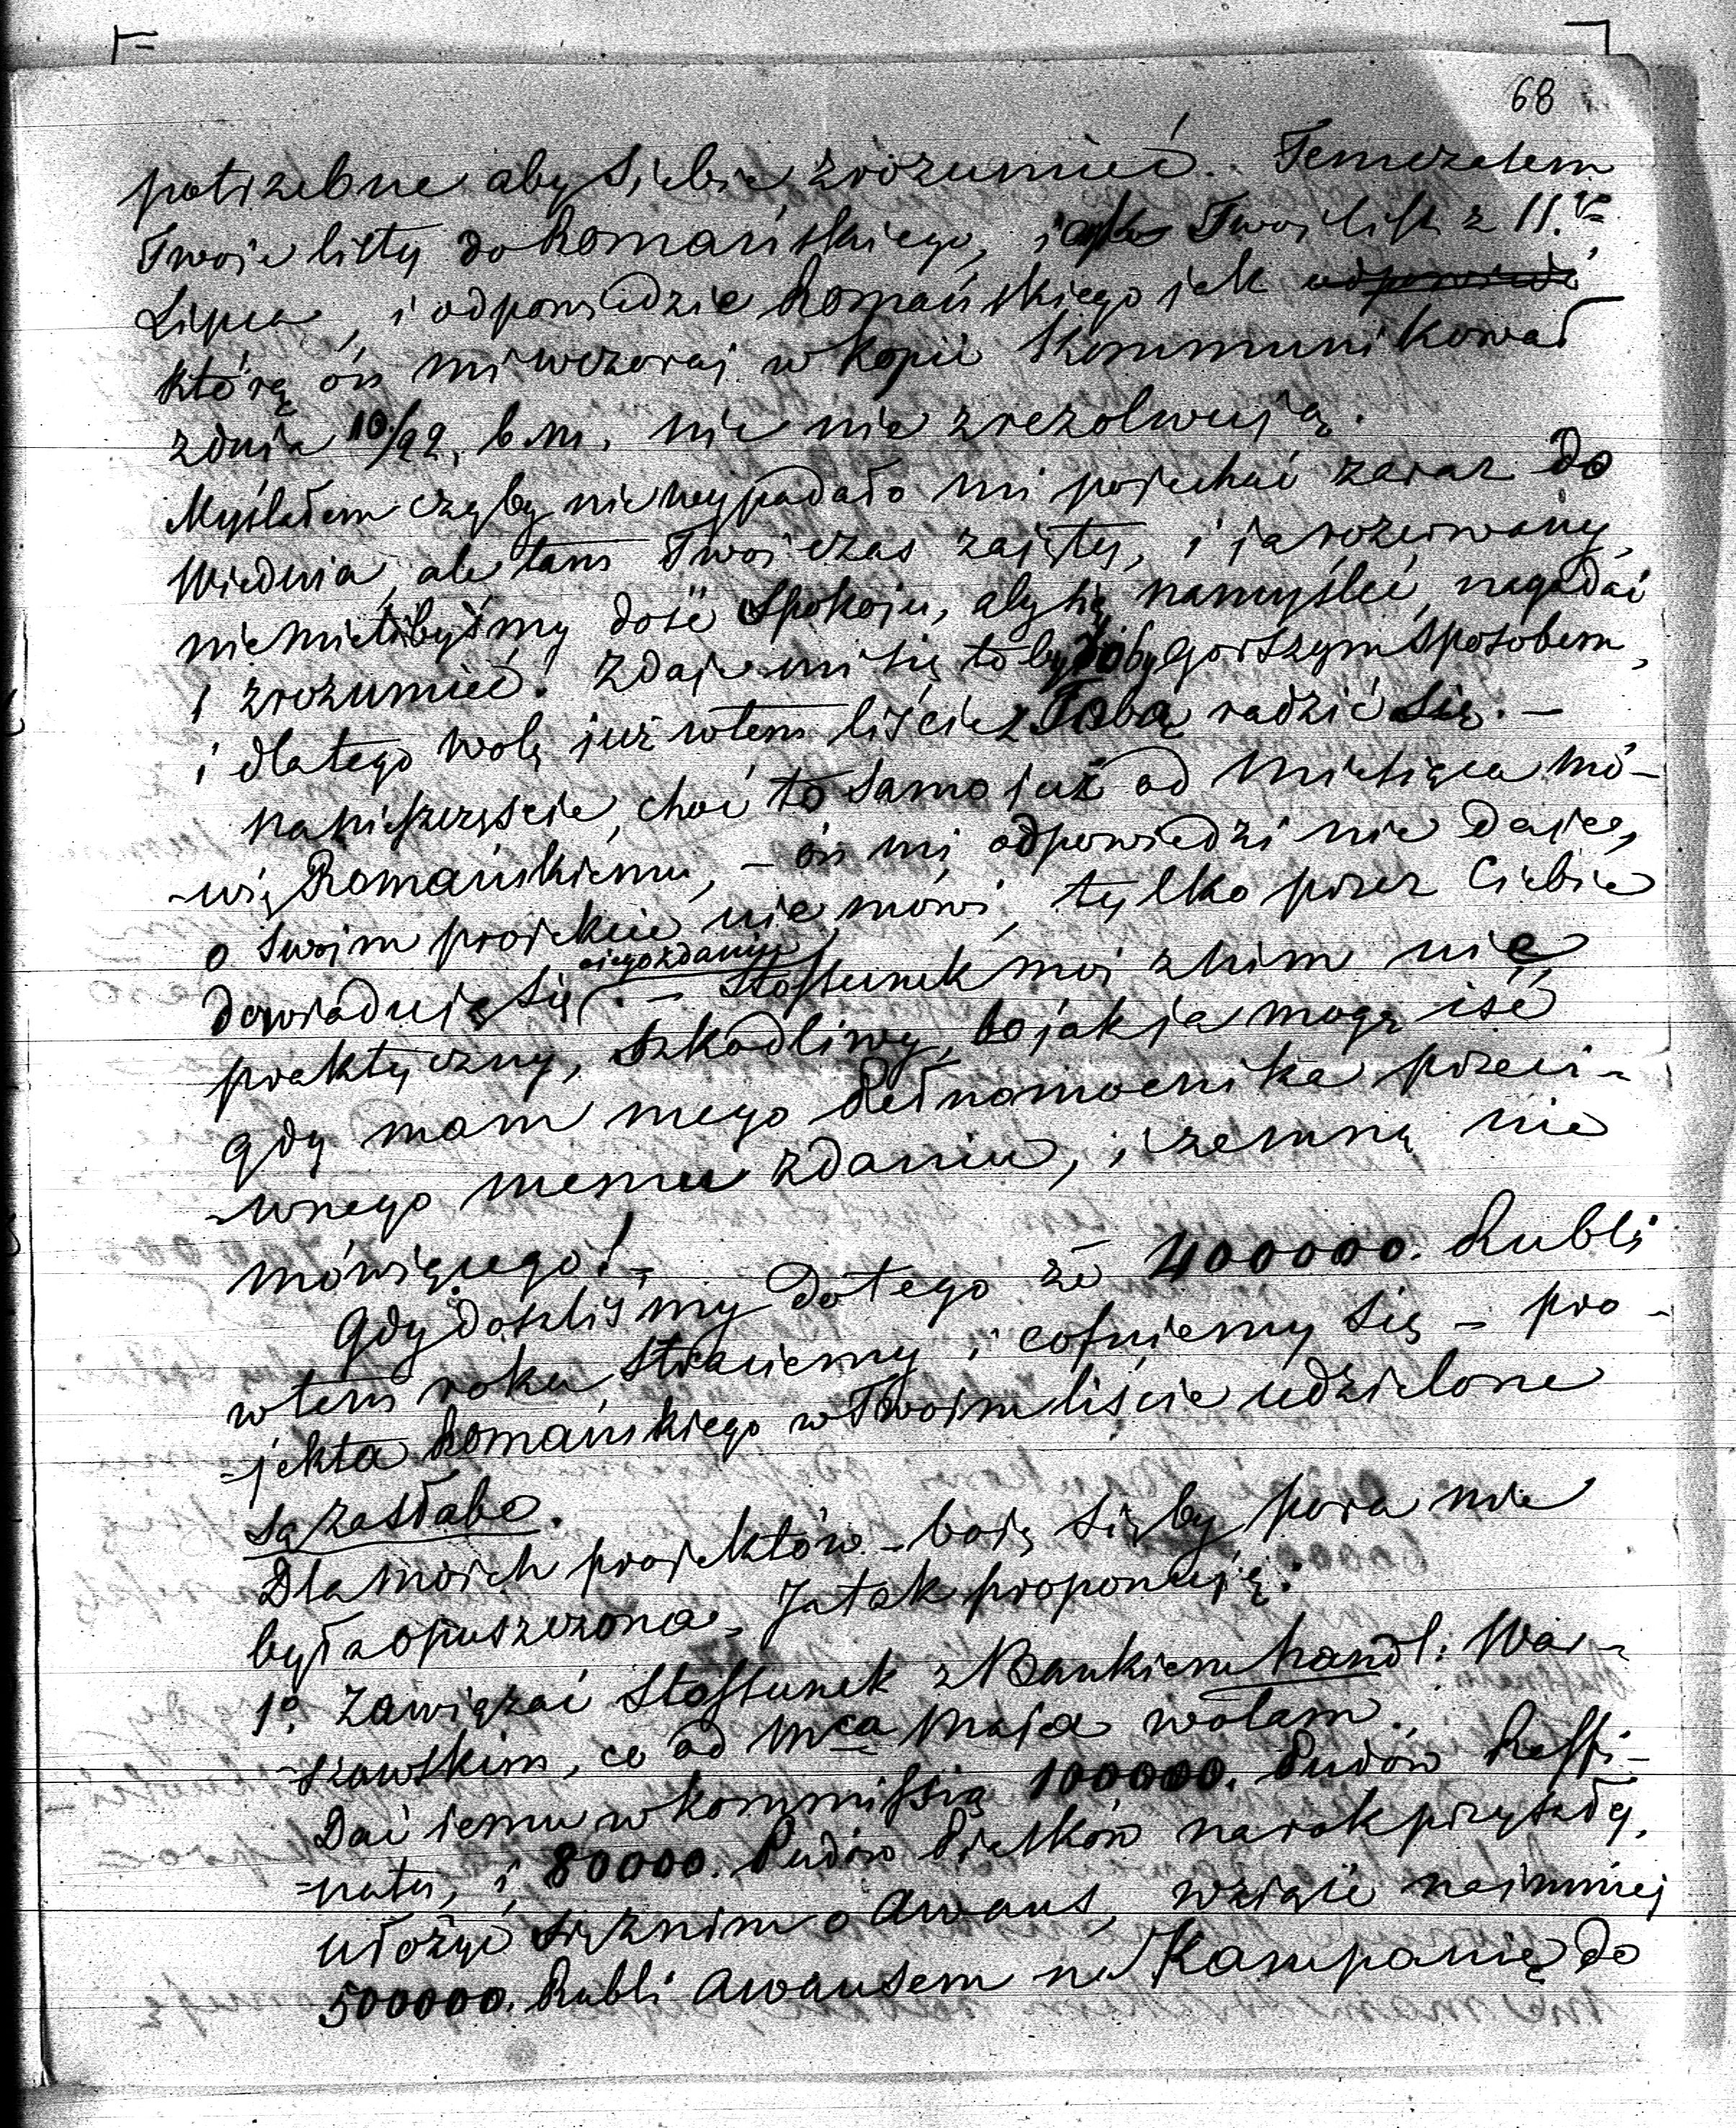 68
potrzebne aby siebie zrozumieć. Temczasem
Twoje listy do Romańskiego, i Twój list z 11.go
Lipca, i odpowiedzie Romańskiego jak odpowiedź
którą ón mi wczoraj w kopii kommunikował
z dnia 10/22, b.m. nic nie zrezolwują.
Myślałem czyby nie wypadało mi pojechać zaraz do
Wiednia, ale tam Twój czas zajęty, i ja rozerwany,
nie mielibyśmy dość spokoju, aby się namyśleć, nagadać
i zrozumieć. Zdaje mi się to byłoby gorszym sposobem,
i dlatego wolę już w tem liście z Tobą radzić się. –
Na nieszczęście, choć to samo już od miesiąca mó-
-wię Romańskiemu, – ón mi odpowiedzi nie daje,
o swoim projekcie nie mówi, tylko przez Ciebie
dowiaduję się o jego zdaniu. – Stosunek mój z nim nie
praktyczny, szkodliwy, bo jak ja mogę iść
gdy mam mego Pełnomocnika przeci-
-wnego memu zdaniu, i zemną nie
mówiącego! –
Gdy doszliśmy do tego że 400000. Rubli
w tem roku straciemy i cofniemy się – pro-
-jekta Romańskiego w Twoim liście udzielone
są za słabe.
Dla moich projektów – boję się by pora nie
była opuszczona. Ja tak proponuję:
1o. Zawiązać stosunek z Bankiem handl: War-
-szawskim, co od mca Maja wołam.
Dać jemu w kommissią 100000. Pudów Raffi-
-natu, i 80000. Pudów Piasków na rok przyszły,
ułożyć się z nim o awans, wziąść najmniej
500000. Rubli awansem na Kampanię do